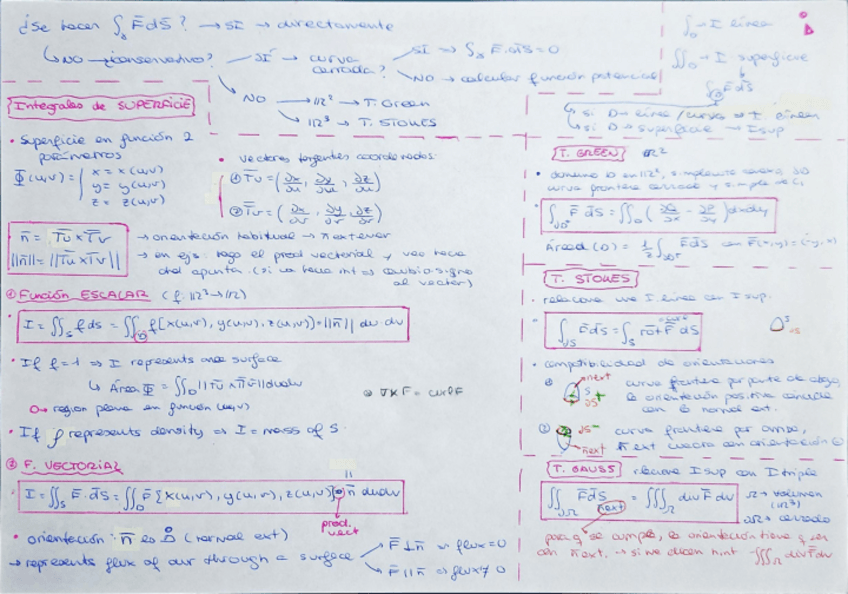 ¿Se hacer ∫_S F̄ds̄? → SÍ → directamente
↳ NO → ¿conservativo? → SÍ → curva cerrada? → SÍ ⇒ ∫_S F̄·ds̄ = 0
→ NO → calcular función potencial
NO → ℝ² → T. Green
→ ℝ³ → T. STOKES
∫ → I línea
∬ → I superficie
∫ F̄ds̄
si D → línea/curva → I. línea
↳ si D → superficie → I sup
Integrales de SUPERFICIE
• Superficie en función 2
parámetros
Φ̄(u,v) = { x = x(u,v)
y = y(u,v)
z = z(u,v)
• vectores tangentes coordenados:
① T̄u = (∂x/∂u, ∂y/∂u, ∂z/∂u)
② T̄v = (∂x/∂v, ∂y/∂v, ∂z/∂v)
n̄ = T̄u × T̄v
||n̄|| = ||T̄u × T̄v||
→ orientación habitual → n̄ exterior
→ en ejs. hago el prod vectorial y veo hacia
dnd apunta. (si va hacia int ⇒ cambio signo
al vector)
① Función ESCALAR (f: ℝ³→ℝ)
I = ∬_S f ds = ∬_D f[x(u,v), y(u,v), z(u,v)]·||n̄|| du·dv
• If f=1 ⇒ I represents area surface
↳ Área Φ̄ = ∬_D ||T̄u ∧ T̄v|| dudv
D → region plana en función (u,v)
⊙ ∇×F = curl F
• If ρ represents density ⇒ I = mass of S
② F. VECTORIAL
I = ∬_S F̄·ds̄ = ∬_D F̄[x(u,v), y(u,v), z(u,v)]·n̄ dudv
prod. vect
• orientación: n̄ es (normal ext)
→ represents flux of our through a surface → F̄ ⊥ n̄ ⇒ flux=0
→ F̄ ∥ n̄ ⇒ flux≠0
T. GREEN ℝ²
• dominio D en ℝ², simplemente conexo, ∂D
curva frontera cerrada y simple de C₁
∫_∂D F̄ ds̄ = ∬_D (∂Q/∂x − ∂P/∂y) dxdy
Área d(D) = ½ ∫_∂D F̄ds̄ con F̄(x,y) = (-y,x)
T. STOKES
• relaciona una I línea con I sup.
∫_∂S F̄ds̄ = ∫_S rot F̄ ds̄
• compatibilidad de orientaciones
① n̄ext curva frontera por parte de abajo,
la orientación positiva coincide
con la normal ext.
② n̄ext curva frontera por arriba,
n̄ ext cuadra con orientación ⊖
T. GAUSS relaciona I sup con I triple
∬_∂Ω F̄ds̄ = ∭_Ω div F̄ dv
n̄ext
Ω → volumen
(ℝ³)
∂Ω → cerrado
para q se cumpla, la orientación tiene q ser
con n̄ext. → si me dicen n̄int −∭_Ω div F̄ dv